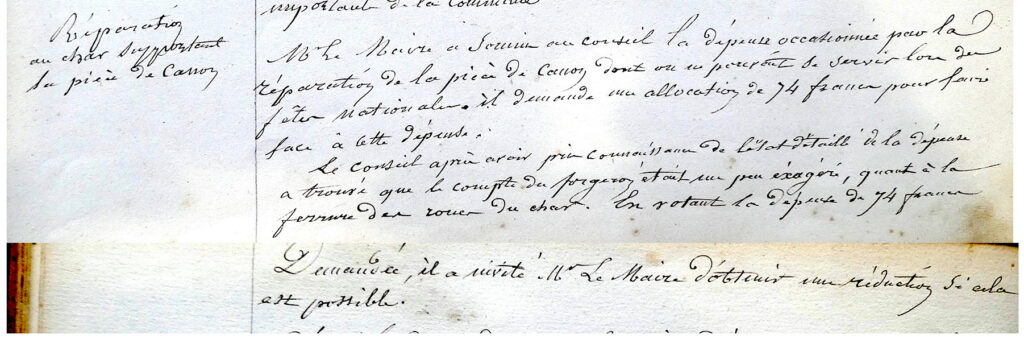 important de la Commune
Réparation
au char supportant
la pièce de Canon
Mr Le Maire a soumis au conseil la dépense occasionnée pour la
réparation de la pièce de Canon dont on se servir lors des
fêtes nationales. il demande une allocation de 74 francs pour faire
face à cette dépense.
Le Conseil après avoir pris connaissance de l'état détaillé de la dépense
a trouvé que le compte du forgeron était un peu éxagéré, quant à la
ferrure des roues du char. En votant la dépense de 74 francs
Demandée, il a invité Mr Le Maire d'obtenir une réduction si cela
est possible.